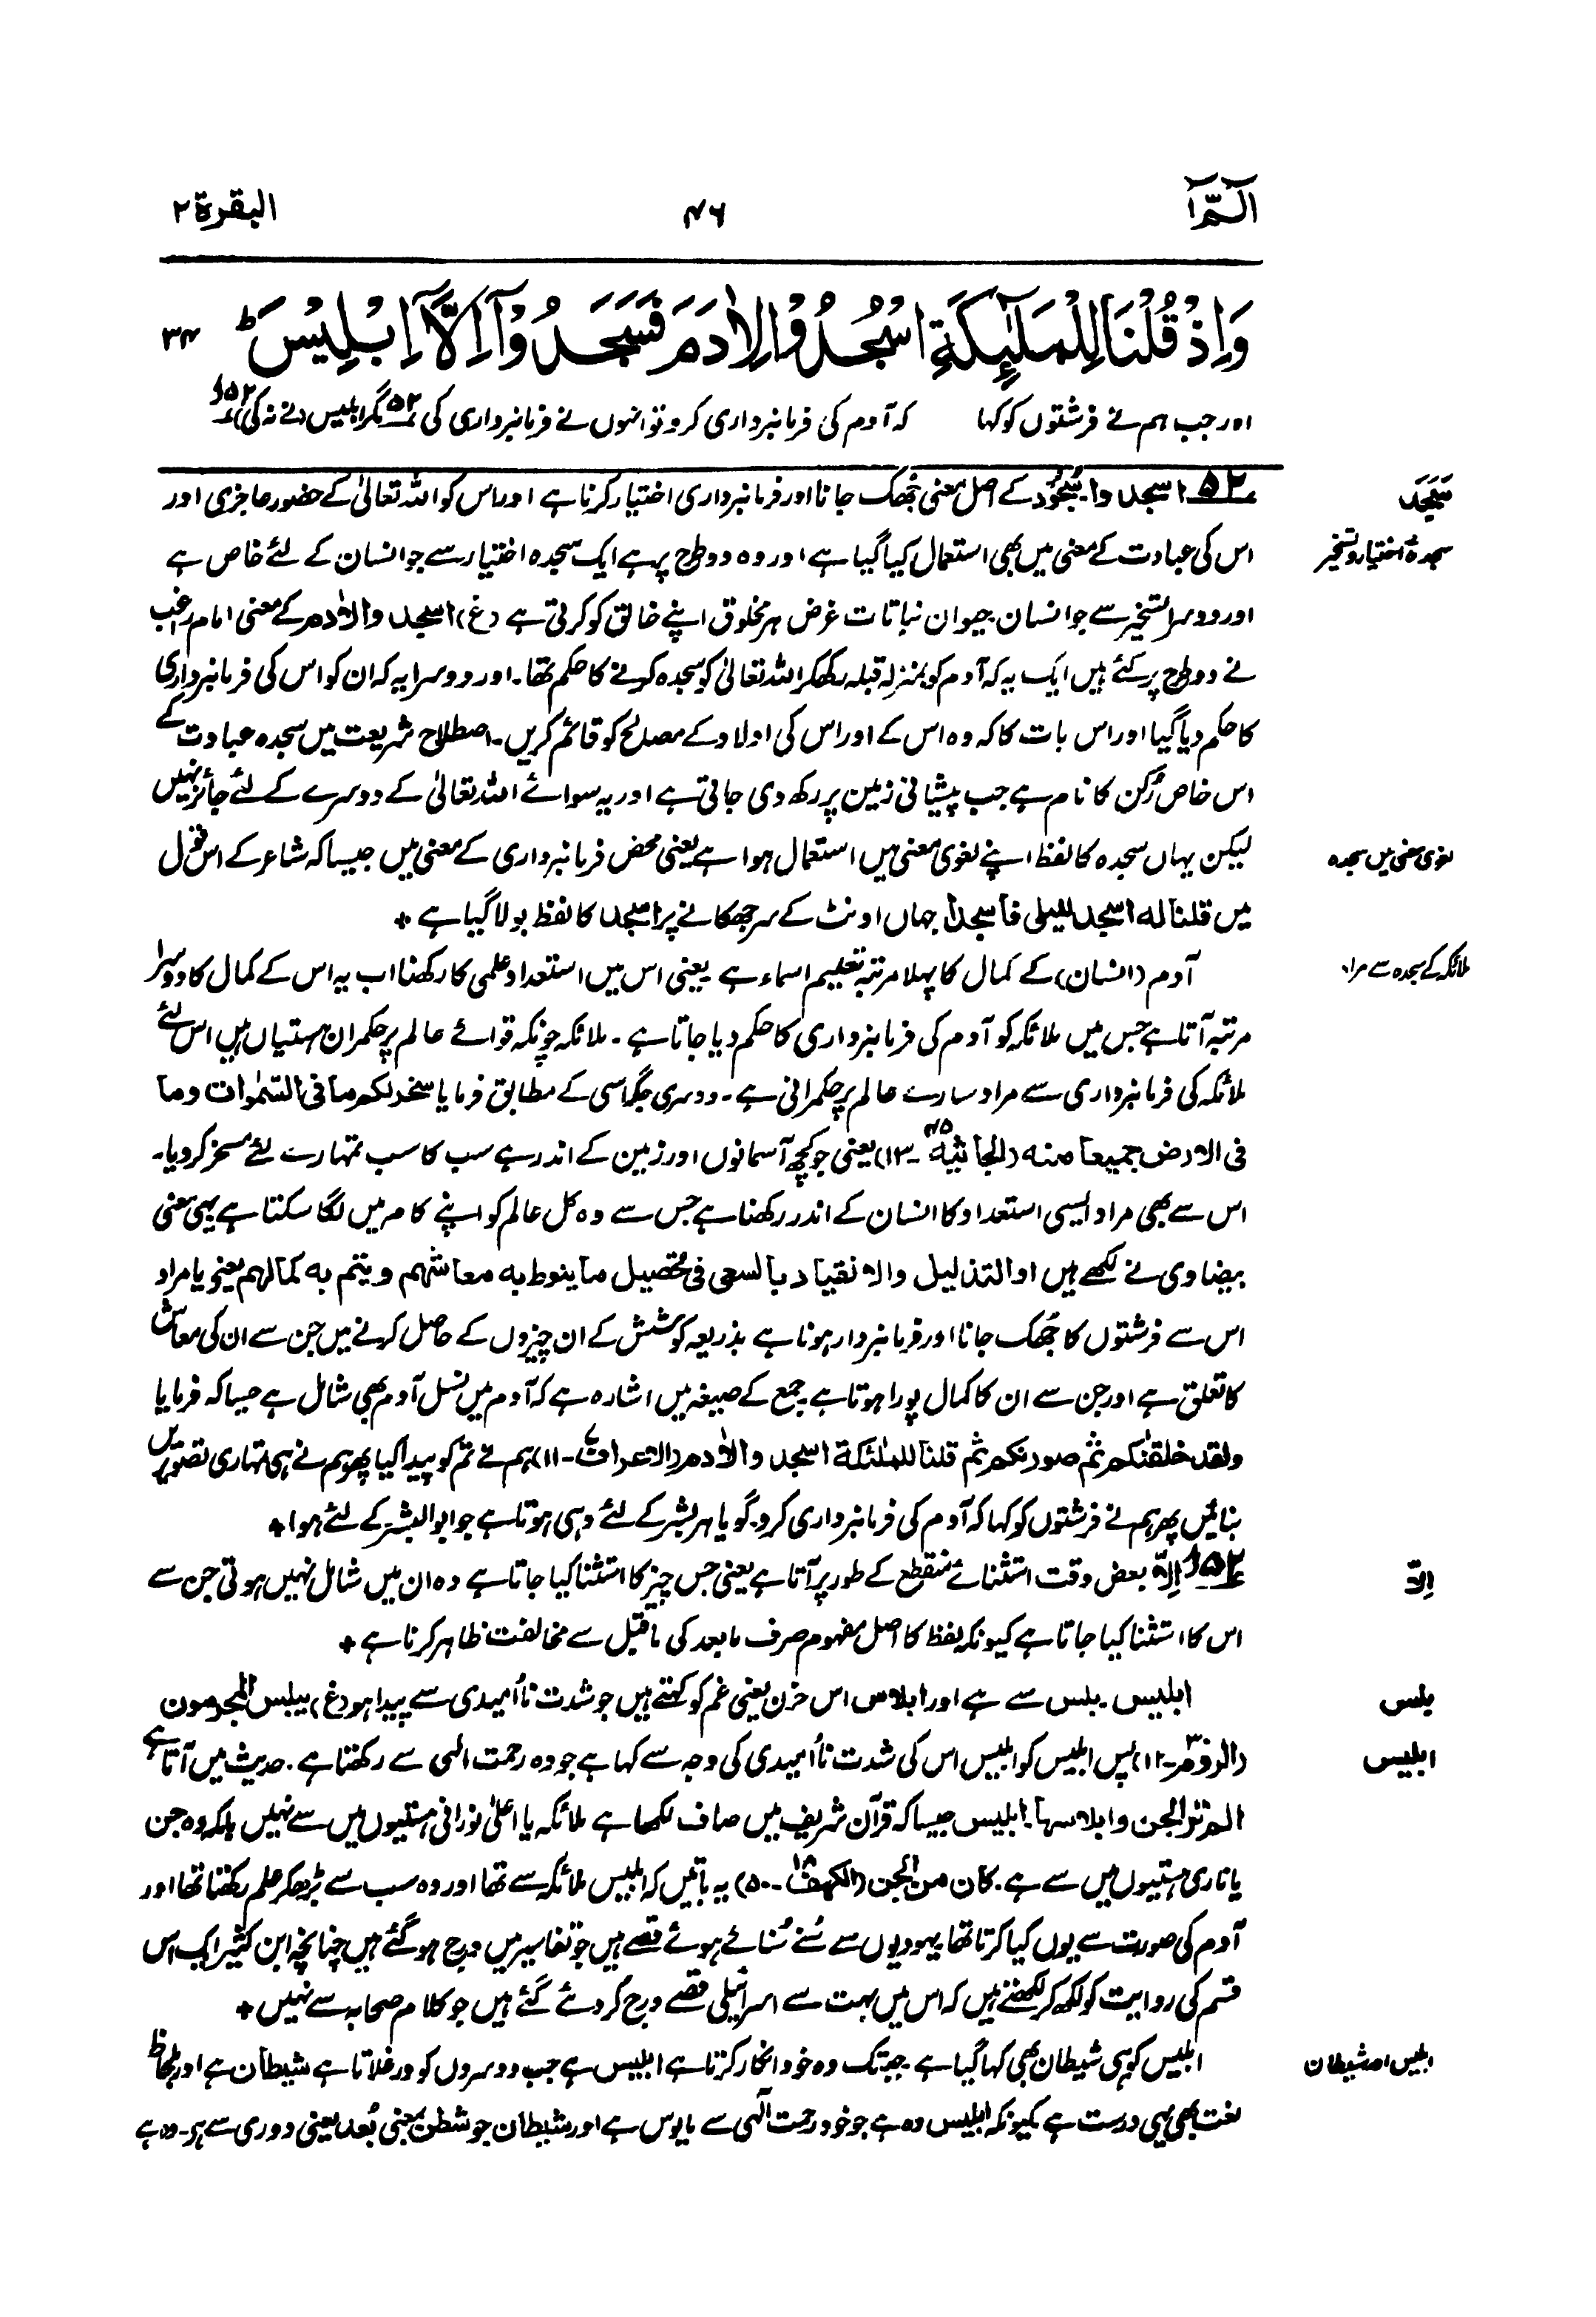 الٓـمّٓ ۱
۴۶
البقرۃ ۲
وَاِذْ قُلْنَا لِلْمَلٰٓئِكَةِ اسْجُدُوْا لِاٰدَمَ فَسَجَدُوْٓا اِلَّآ اِبْلِيْسَ ؕ ۳۴
اور جب ہم نے فرشتوں کو کہا کہ آدم کی فرمانبرداری کرو تو انہوں نے فرمانبرداری کی ۵۲ مگر ابلیس (نے نہ کی) ۵۲ا
سَجَدَ
۵۲ اسجدوا۔ سُجُوْد کے اصل معنی جُھک جانا اور فرمانبرداری اختیار کرنا ہے اور اس کو اللہ تعالیٰ کے حضور عاجزی اور
سجدۂ اختیار و تسخیر
اس کی عبادت کے معنی میں بھی استعمال کیا گیا ہے اور وہ دو طرح پر ہے ایک سجدہ اختیار سے جو انسان کے لئے خاص ہے
اور دوسرا تسخیر سے جو انسان حیوان نباتات غرض ہر مخلوق اپنے خالق کو کرتی ہے (غ) اسجدوا لاٰدم کے معنی امام راغب
نے دو طرح پر کئے ہیں ایک یہ کہ آدم کو بمنزلہ قبلہ رکھکر اللہ تعالیٰ کو سجدہ کرنے کا حکم تھا۔ اور دوسرا یہ کہ ان کو اس کی فرمانبرداری
کا حکم دیا گیا اور اس بات کا کہ وہ اس کے اور اس کی اولاد کے مصالح کو قائم کریں۔ اصطلاح شریعت میں سجدہ عبادت کے
اس خاص رُکن کا نام ہے جب پیشانی زمین پر رکھ دی جاتی ہے اور یہ سوائے اللہ تعالیٰ کے دوسرے کے لئے جائز نہیں
لغوی معنی میں سجدہ
لیکن یہاں سجدہ کا لفظ اپنے لغوی معنی میں استعمال ہوا ہے یعنی محض فرمانبرداری کے معنی میں جیسا کہ شاعر کے اس قول
میں قلنا له اسجد لليلى فاسجدا جہاں اونٹ کے سر جھکانے پر اسجد کا لفظ بولا گیا ہے +
ملائکہ کے سجدہ سے مراد
آدم (انسان) کے کمال کا پہلا مرتبہ تعلیم اسماء ہے یعنی اس میں استعداد علمی کا رکھنا اب یہ اس کے کمال کا دوسرا
مرتبہ آتا ہے جس میں ملائکہ کو آدم کی فرمانبرداری کا حکم دیا جاتا ہے۔ ملائکہ چونکہ قوائے عالم پر حکمران ہستیاں ہیں اس لئے
ملائکہ کی فرمانبرداری سے مراد سارے عالم پر حکمرانی ہے۔ دوسری جگہ اسی کے مطابق فرمایا سخر لكم ما فى السمٰوات وما
فى الارض جميعا منه (الجاثیۃ ۴۵۔۱۳) یعنی جو کچھ آسمانوں اور زمین کے اندر ہے سب کا سب تمہارے لئے مسخر کر دیا۔
اس سے بھی مراد ایسی استعداد کا انسان کے اندر رکھنا ہے جس سے وہ کل عالم کو اپنے کام میں لگا سکتا ہے یہی معنی
بیضاوی نے لکھے ہیں او التذليل والانقياد بالسعى فى تحصيل ما ينوط به معاشهم ويتم به كمالهم یعنی یا مراد
اس سے فرشتوں کا جُھک جانا اور فرمانبردار ہونا ہے بذریعہ کوشش کے ان چیزوں کے حاصل کرنے میں جن سے ان کی معاش
کا تعلق ہے اور جن سے ان کا کمال پورا ہوتا ہے جمع کے صیغہ میں اشارہ ہے کہ آدم میں نسل آدم بھی شامل ہے جیسا کہ فرمایا
ولقد خلقنٰكم ثم صورنٰكم ثم قلنا للملٰئكة اسجدوا لاٰدم (الاعراف ۷۔۱۱) ہم نے تم کو پیدا کیا پھر ہم نے ہی تمہاری تصویریں
بنائیں پھر ہم نے فرشتوں کو کہا کہ آدم کی فرمانبرداری کرو۔ گویا ہر بشر کے لئے وہی ہوتا ہے جو ابو البشر کے لئے ہوا +
اِلّا
۵۲ا اِلّا بعض وقت استثنائے منقطع کے طور پر آتا ہے یعنی جس چیز کا استثنا کیا جاتا ہے وہ ان میں شامل نہیں ہوتی جن سے
اس کا استثنا کیا جاتا ہے کیونکہ لفظ کا اصل مفہوم صرف مابعد کی ماقبل سے مخالفت ظاہر کرنا ہے +
بلس
ابلیس۔ بلس سے ہے اور ابلاس اس حزن یعنی غم کو کہتے ہیں جو شدت نااُمیدی سے پیدا ہو (غ) يبلس المجرمون
ابلیس
(الروم ۳۰۔۱۲) پس ابلیس کو ابلیس اس کی شدت نااُمیدی کی وجہ سے کہا ہے جو وہ رحمت الہی سے رکھتا ہے۔ حدیث میں آتا ہے
الم تر الجن وابلاسها۔ ابلیس جیسا کہ قرآن شریف میں صاف لکھا ہے ملائکہ یا اعلیٰ نورانی ہستیوں میں سے نہیں بلکہ وہ جن
یا ناری ہستیوں میں سے ہے۔ كان من الجن (الکہف ۱۸۔۵۰) یہ باتیں کہ ابلیس ملائکہ سے تھا اور وہ سب سے بڑھکر علم رکھتا تھا اور
آدم کی صورت سے یوں کیا کرتا تھا یہودیوں سے سُنے سُنائے ہوئے قصے ہیں جو تفاسیر میں درج ہو گئے ہیں چنانچہ ابن کثیر ایک اس
قسم کی روایت کو لکھ کر لکھتے ہیں کہ اس میں بہت سے اسرائیلی قصے درج کر دئے گئے ہیں جو کلام صحابہ سے نہیں +
ابلیس اور شیطان
ابلیس کو ہی شیطان بھی کہا گیا ہے جبتک وہ خود انکار کرتا ہے ابلیس ہے جب دوسروں کو ورغلاتا ہے شیطان ہے اور بلحاظ
لغت بھی یہی درست ہے کیونکہ ابلیس وہ ہے جو خود رحمت الٰہی سے مایوس ہے اور شیطان جو شطن بمعنی بُعد یعنی دوری سے ہے۔ وہ ہے